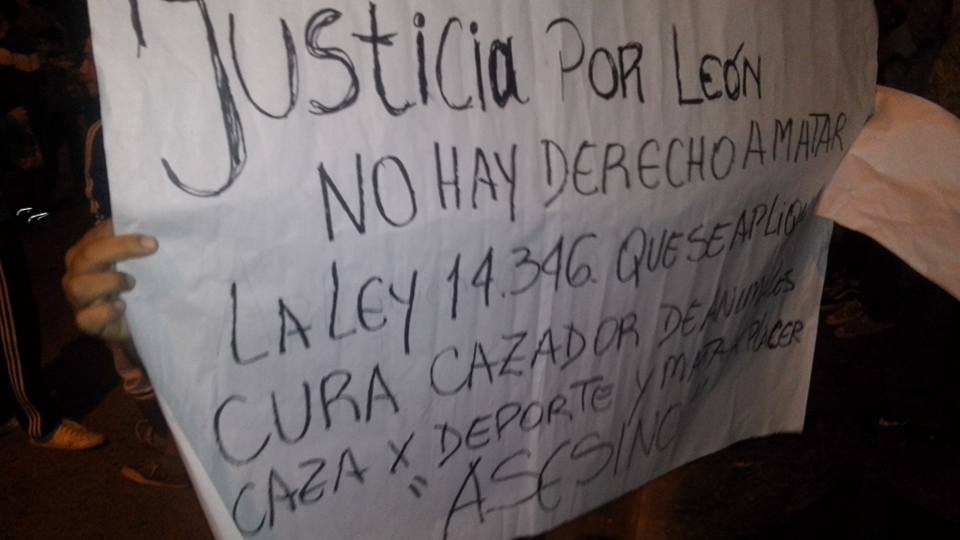 Justicia POR LEÓN
NO HAY DERECHO A MATAR
LA LEY 14.346. QUE SE APLIQU
CURA CAZADOR DE ANIMALES
CAZA X DEPORTE Y MATA X PLACER
"ASESINO